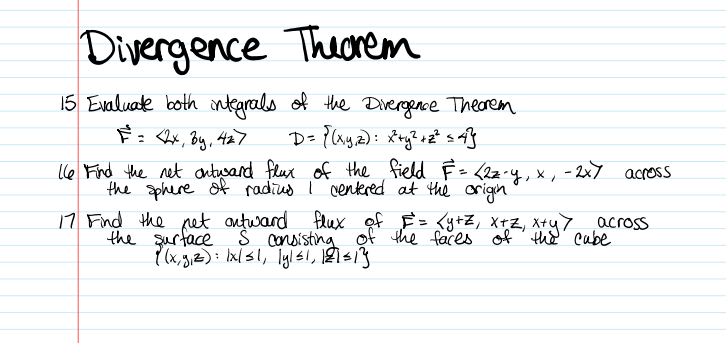 Divergence Theorem
15 Evaluate both integrals of the Divergence Theorem
F⃗ = <2x, 3y, 4z> D = {(x,y,z) : x²+y²+z² ≤ 4}
16 Find the net outward flux of the field F⃗ = <2z-y, x, -2x> across
the sphere of radius 1 centered at the origin
17 Find the net outward flux of F⃗ = <y+z, x+z, x+y> across
the surface S consisting of the faces of the cube
{(x,y,z) : |x| ≤ 1, |y| ≤ 1, |z| ≤ 1}